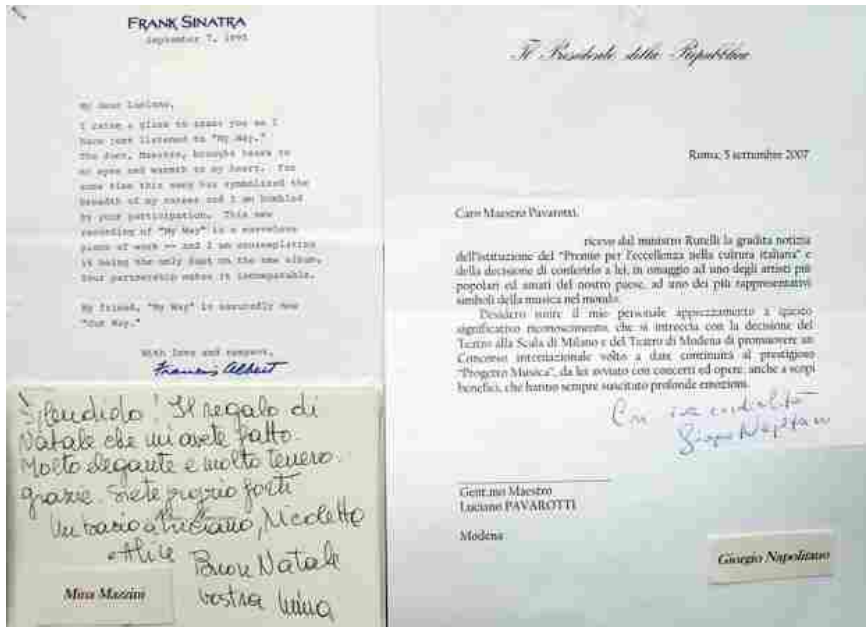 FRANK SINATRA
September 7, 1993
My dear Luciano,
I raise a glass to toast you as I
have just listened to "My Way."
The duet, Maestro, brought tears to
my eyes and warmth to my heart. For
some time this song has symbolized the
breadth of my career and I am humbled
by your participation. This new
recording of "My Way" is a marvelous
piece of work -- and I am contemplating
it being the only duet on the new album.
Your partnership makes it incomparable.
My friend, "My Way" is assuredly now
"Our Way."
With love and respect,
Francis Albert
Splendido! Il regalo di
Natale che mi avete fatto.
Molto elegante e molto tenero.
grazie. Siete proprio forti
Un bacio a Luciano, Nicoletta
e Alice
Buon Natale
vostra Mina
Mina Mazzini
Il Presidente della Repubblica
Roma, 5 settembre 2007
Caro Maestro Pavarotti,
ricevo dal ministro Rutelli la gradita notizia
dell'istituzione del "Premio per l'eccellenza nella cultura italiana" e
della decisione di conferirlo a lei, in omaggio ad uno degli artisti più
popolari ed amati del nostro paese, ad uno dei più rappresentativi
simboli della musica nel mondo.
Desidero unire il mio personale apprezzamento a questo
significativo riconoscimento, che si intreccia con la decisione del
Teatro alla Scala di Milano e del Teatro di Modena di promuovere un
Concorso internazionale volto a dare continuità al prestigioso
"Progetto Musica", da lei avviato con concerti ed opere, anche a scopi
benefici, che hanno sempre suscitato profonde emozioni.
Con viva cordialità
Giorgio Napolitano
Gent.mo Maestro
Luciano PAVAROTTI
Modena
Giorgio Napolitano